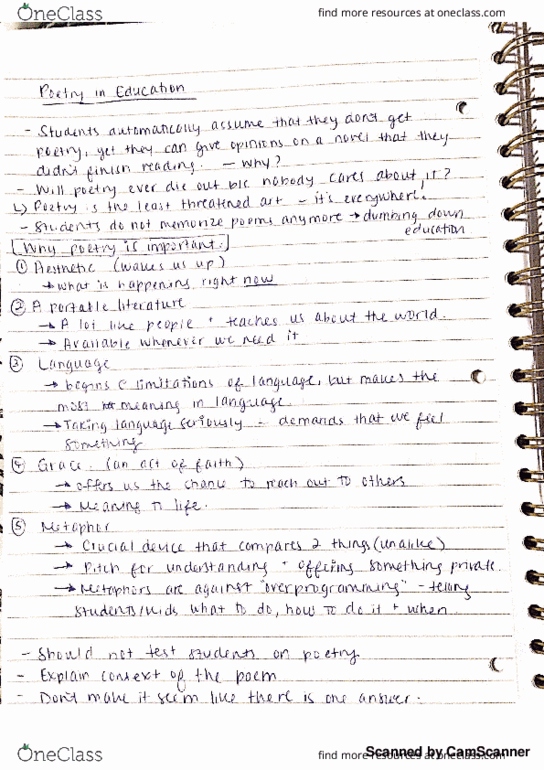 OneClass
find more resources at oneclass.com
Poetry in Education
- Students automatically assume that they don't get
poetry, yet they can give opinions on a novel that they
didn't finish reading. - why?
- Will poetry ever die out b/c nobody cares about it?
↳ Poetry is the least threatened art - it's everywhere.
- Students do not memorize poems anymore → dumbing down
education
Why poetry is important:
① Aesthetic (wakes us up)
→ what is happening right now
② A portable literature
→ A lot like people + teaches us about the world.
→ Available whenever we need it
③ Language
→ begins c limitations of language, but makes the
most meaning in language
→ Taking language seriously - demands that we feel
something
④ Grace. (an act of faith)
→ offers us the chance to reach out to others
→ Meaning in life.
⑤ Metaphor
→ Crucial device that compares 2 things (unalike)
→ Pitch for understanding + offering something private.
→ Metaphors are against "overprogramming" - telling
students/kids what to do, how to do it + when
- Should not test students on poetry
- Explain context of the poem
- Don't make it seem like there is one answer.
OneClass
find more resources at oneclass.com
Scanned by CamScanner